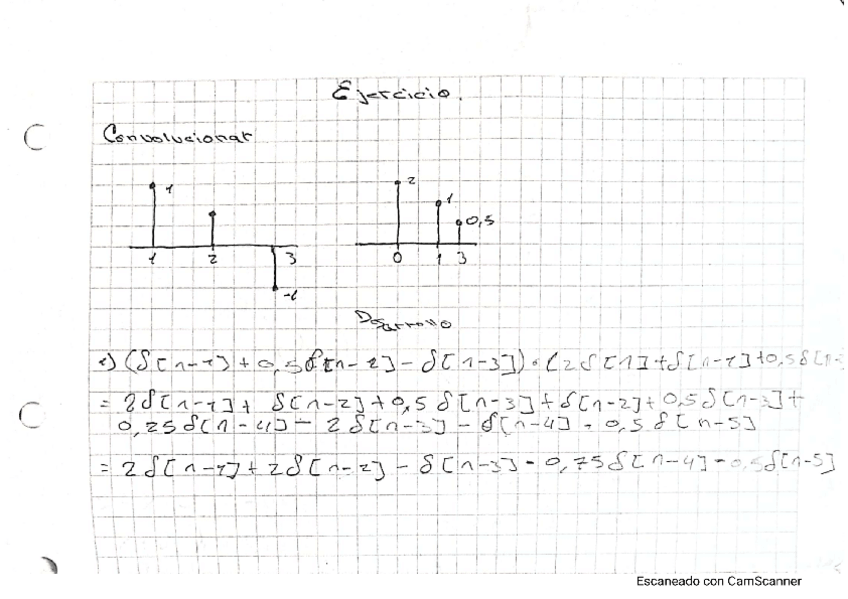 Ejercicio.
Convolucionar
1
2
1
0,5
1 2 3
0 1 3
-1
Desarrollo
(δ[n-1]+0,5δ[n-2]-δ[n-3])·(2δ[n]+δ[n-1]+0,5δ[n-
= 2δ[n-1]+ δ[n-2]+0,5δ[n-3]+δ[n-2]+0,5δ[n-3]+
0,25δ[n-4]- 2δ[n-3]-δ[n-4]-0,5δ[n-5]
= 2δ[n-1]+2δ[n-2]-δ[n-3]-0,75δ[n-4]-0,5δ[n-5]
Escaneado con CamScanner